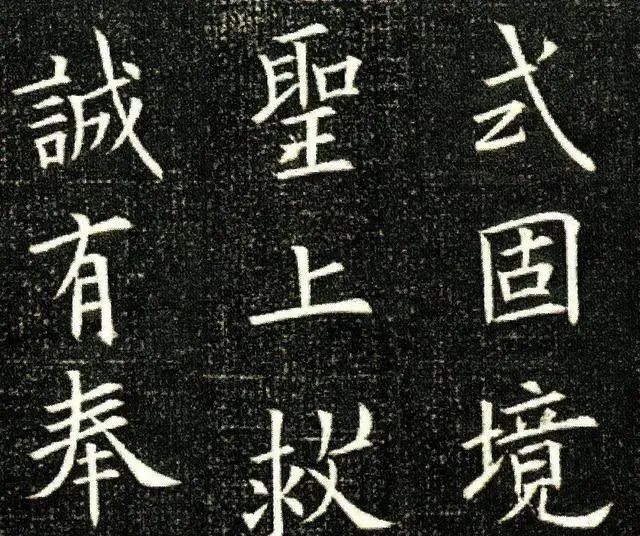 式固境
聖上救
誠有奉